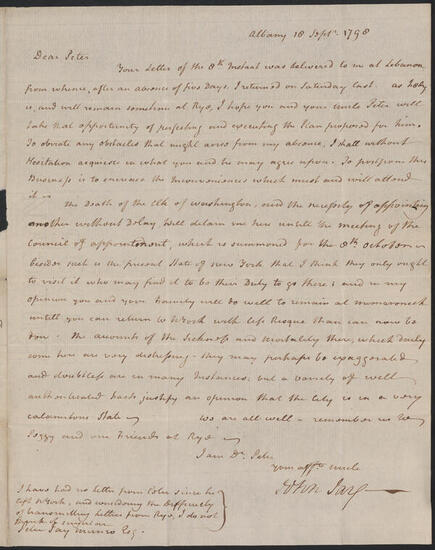 Albany 18 Septr. 1798
Dear Peter
Your Letter of the 8th Instant was delivered to me at Lebanon
from whence, after an absence of five Days, I returned on Saturday last. as
is, and will remain sometime at Rye, I hope you and your uncle Peter will
take that opportunity of perfecting and executing the Plan proposed for him.
To obviate any obstacles that might arise from my absence, I shall without
Hesitation acquiesce in what you and he may agree upon. To postpone this
Business is to encrease the Inconveniences which must and will attend
it—
The Death of the Clk of Washington, and the necessity of appointing
another without Delay, will detain me here until the meeting of the
Council of appointment, which is summoned for the 8th October—
besides such is the present State of new York that I think they only ought
to visit it who may find it to be their Duty to go there; and in my
opinion you and your Family will do well to remain at mamaroneck
untill you can return to N York with less Risque than can now be
done. The accounts of the Sickness and mortality there, which daily
come here are very distressing—they may perhaps be exaggerated
and doubtless are in many Instances; but a variety of well
authenticated facts justify an opinion that the City is in a very
calamitous State— We are all well—remember us to
Peggy and our Friends at Rye—
I am Dr. Peter
your affte. uncle
John Jay—
I have had no letter from Peter since he
left N York, and considering the Difficulty
of transmitting letters from Rye, I do not
think it singular
Peter Jay Munro Esq.